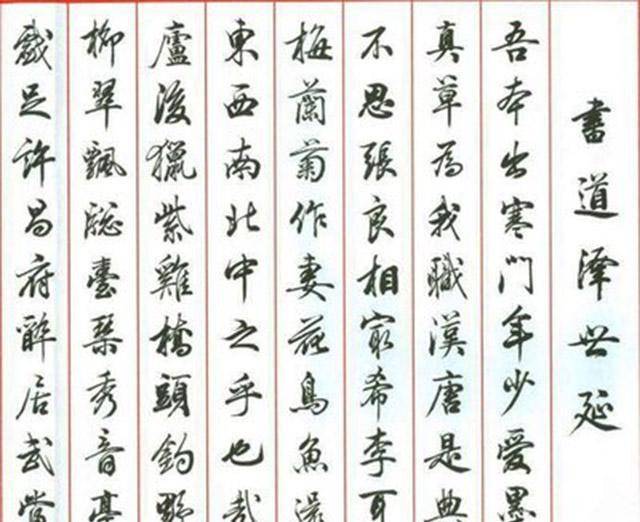 書道澤世延
吾本出寒門年少愛墨
真草為我職漢唐是典
不思張良相最希李耳
梅蘭菊作妻花鳥魚
東西南北中之乎也哉
廬後獵紫雞橋頭釣
柳翠飄臺琴秀音亭
戲足許昌府醉居武當